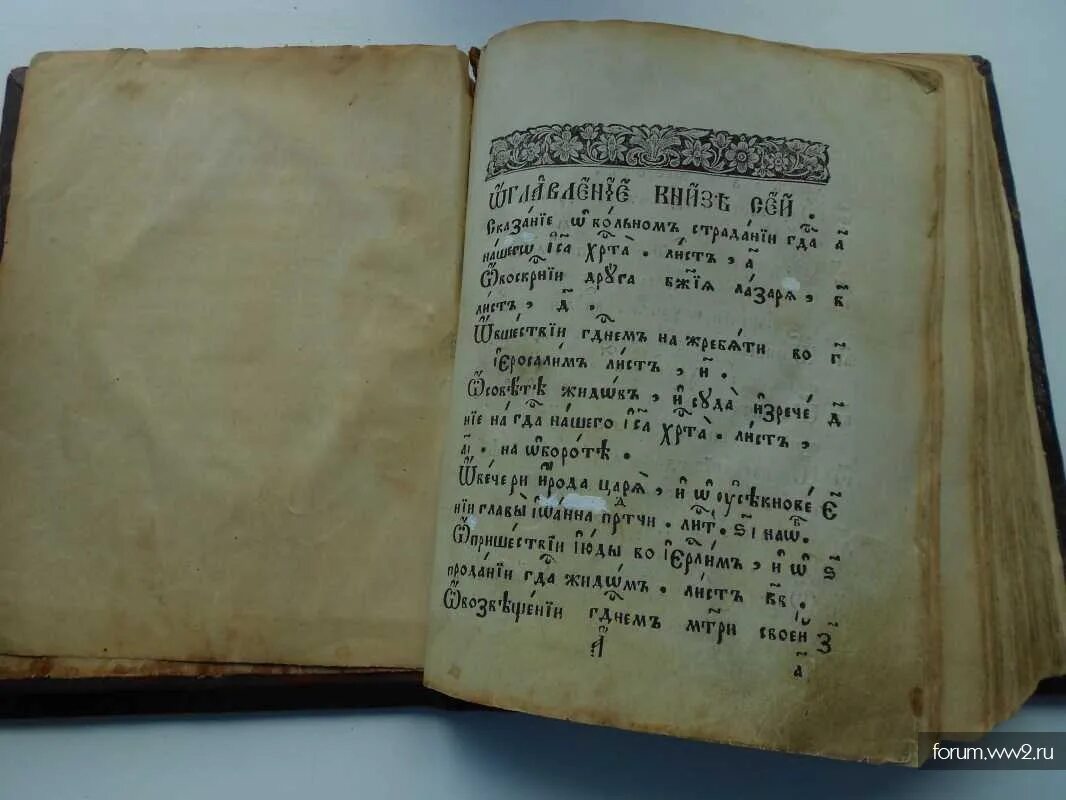 Ѡ҆гла́вле́нїе кни́зѣ се́й .
Сказа́нїе ѡ҆ во́льномъ страда́нїи гдⷭ҇а а҃
на́шегѡ і҆с҃а хрⷭ҇та̀ . ли́стъ , а҃
Ѡ҆ воскр҃нїи дрꙋ́га бж҃їѧ ла́зарѧ , в҃
ли́стъ , д҃ .
Ѡ҆ вше́ствїи гдⷭ҇немъ на жребѧ́ти во г҃
і҆еросали́мъ ли́стъ , и҃ .
Ѡ҆ совѣ́тѣ жидѡ́въ , и҆ сꙋда̀ и҆зрече́ д҃
нїе на́ гдⷭ҇а на́шего і҆с҃а хрⷭ҇та̀ . ли́стъ ,
а҃і . на ѡ҆боро́тѣ .
Ѡ҆ ве́чери и҆́рода царѧ̀ , и҆ ѡ҆ оу҆сѣкнове́ є҃
нїи главы̀ і҆ѡа́нна прⷣтчи . лиⷭ҇т . ѕ҃і наѡⷠ҇ .
Ѡ҆ прише́ствїи і҆ю́ды во і҆ер҃ли́мъ , и҆ ѡ҆ ѕ҃
прода́нїи гдⷭ҇а жидѡ́м . ли́стъ к҃в .
Ѡ҆ возвѣще́нїи гдⷭ҇немъ мт҃ри свое́й з҃
а҃
а҃
forum.ww2.ru